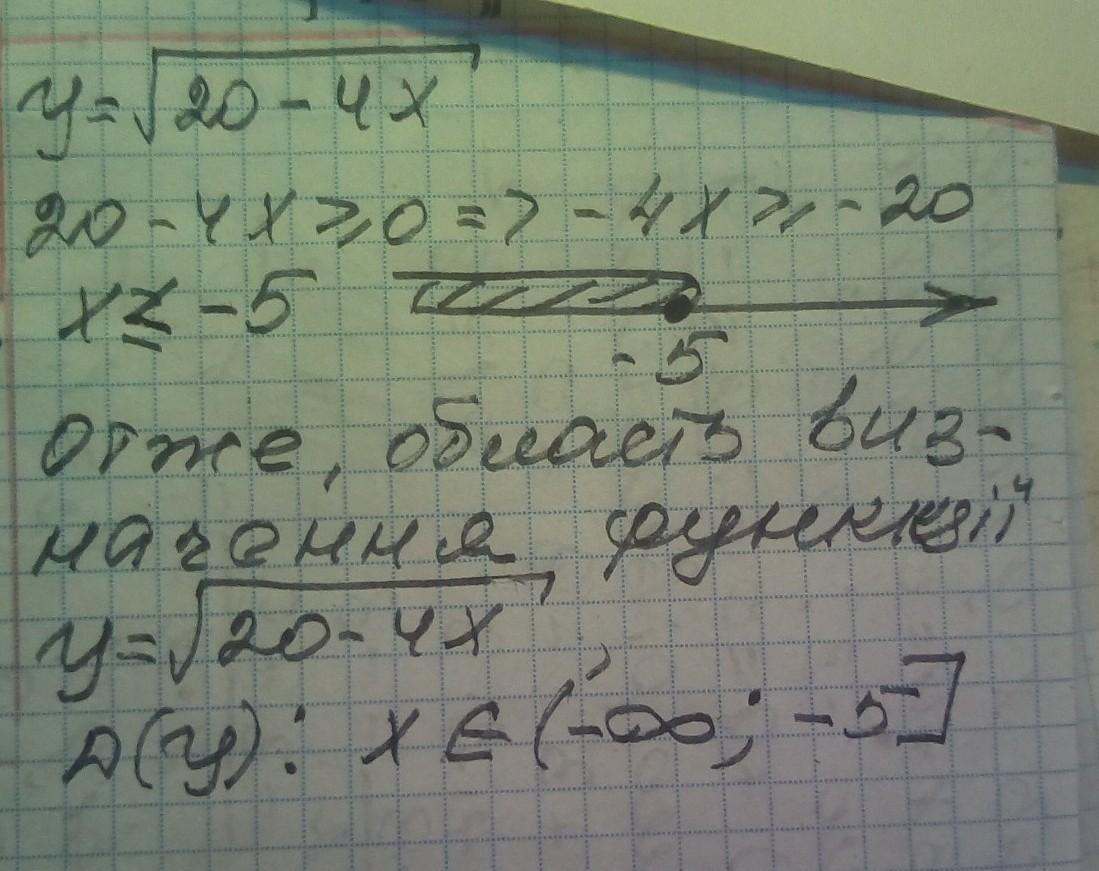 y=√20-4x
20-4x⩾0=>-4x⩾-20
x≤-5
-5
отже, область виз-
начення функції
y=√20-4x,
D(y): x∈(-∞; -5]